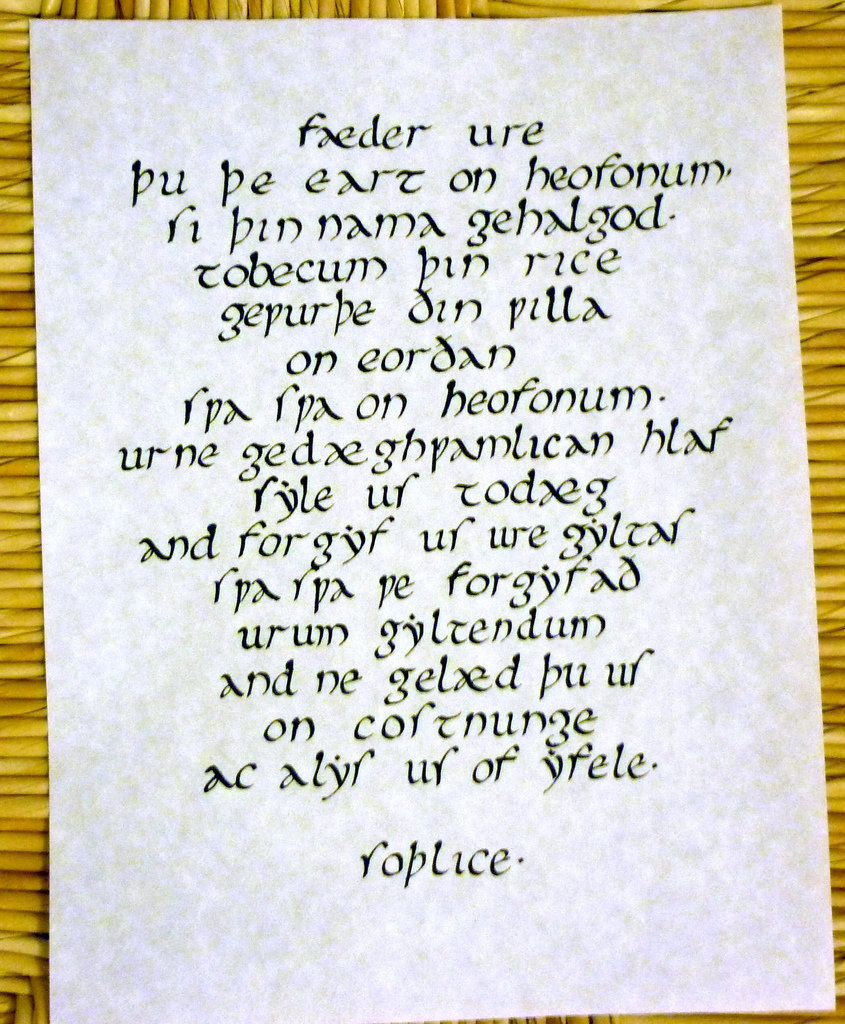 fæder ure
þu þe eart on heofonum·
si þin nama gehalgod·
tobecum þin rice
geƿurþe ðin ƿilla
on eorðan
sƿa sƿa on heofonum·
urne gedæghƿamlican hlaf
sẏle us todæg
and forgẏf us ure gẏltas
sƿa sƿa ƿe forgẏfað
urum gẏltendum
and ne gelæd þu us
on costnunge
ac alẏs us of ẏfele·
soþlice·